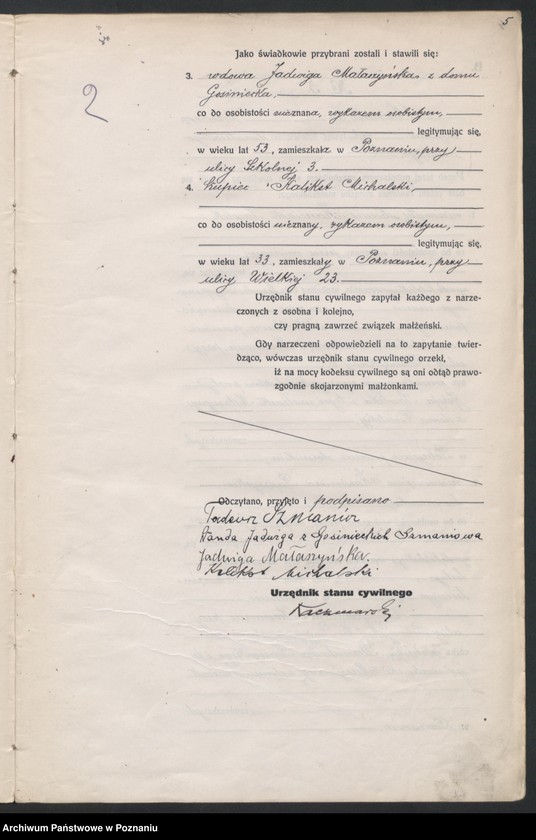 5
2
Jako świadkowie przybrani zostali i stawili się:
3. wdowa Jadwiga Małaszyńska z domu
Gosiniecka,
co do osobistości uznana, wykazem osobistym,
legitymując się,
w wieku lat 53, zamieszkała w Poznaniu, przy
ulicy Szkolnej 3.
4. kupiec Kalikst Michalski,
co do osobistości uznany, wykazem osobistym,
legitymując się,
w wieku lat 33, zamieszkały w Poznaniu, przy
ulicy Wielkiej 23.
Urzędnik stanu cywilnego zapytał każdego z narze-
czonych z osobna i kolejno,
czy pragną zawrzeć związek małżeński.
Gdy narzeczeni odpowiedzieli na to zapytanie twier-
dząco, wówczas urzędnik stanu cywilnego orzekł,
iż na mocy kodeksu cywilnego są oni odtąd prawo-
zgodnie skojarzonymi małżonkami.
Odczytano, przyjęto i podpisano
Tadeusz Szmania
Wanda Jadwiga z Gosinieckich Szmaniowa
Jadwiga Małaszyńska.
Kalikst Michalski
Urzędnik stanu cywilnego
Kaczmarek
Archiwum Państwowe w Poznaniu